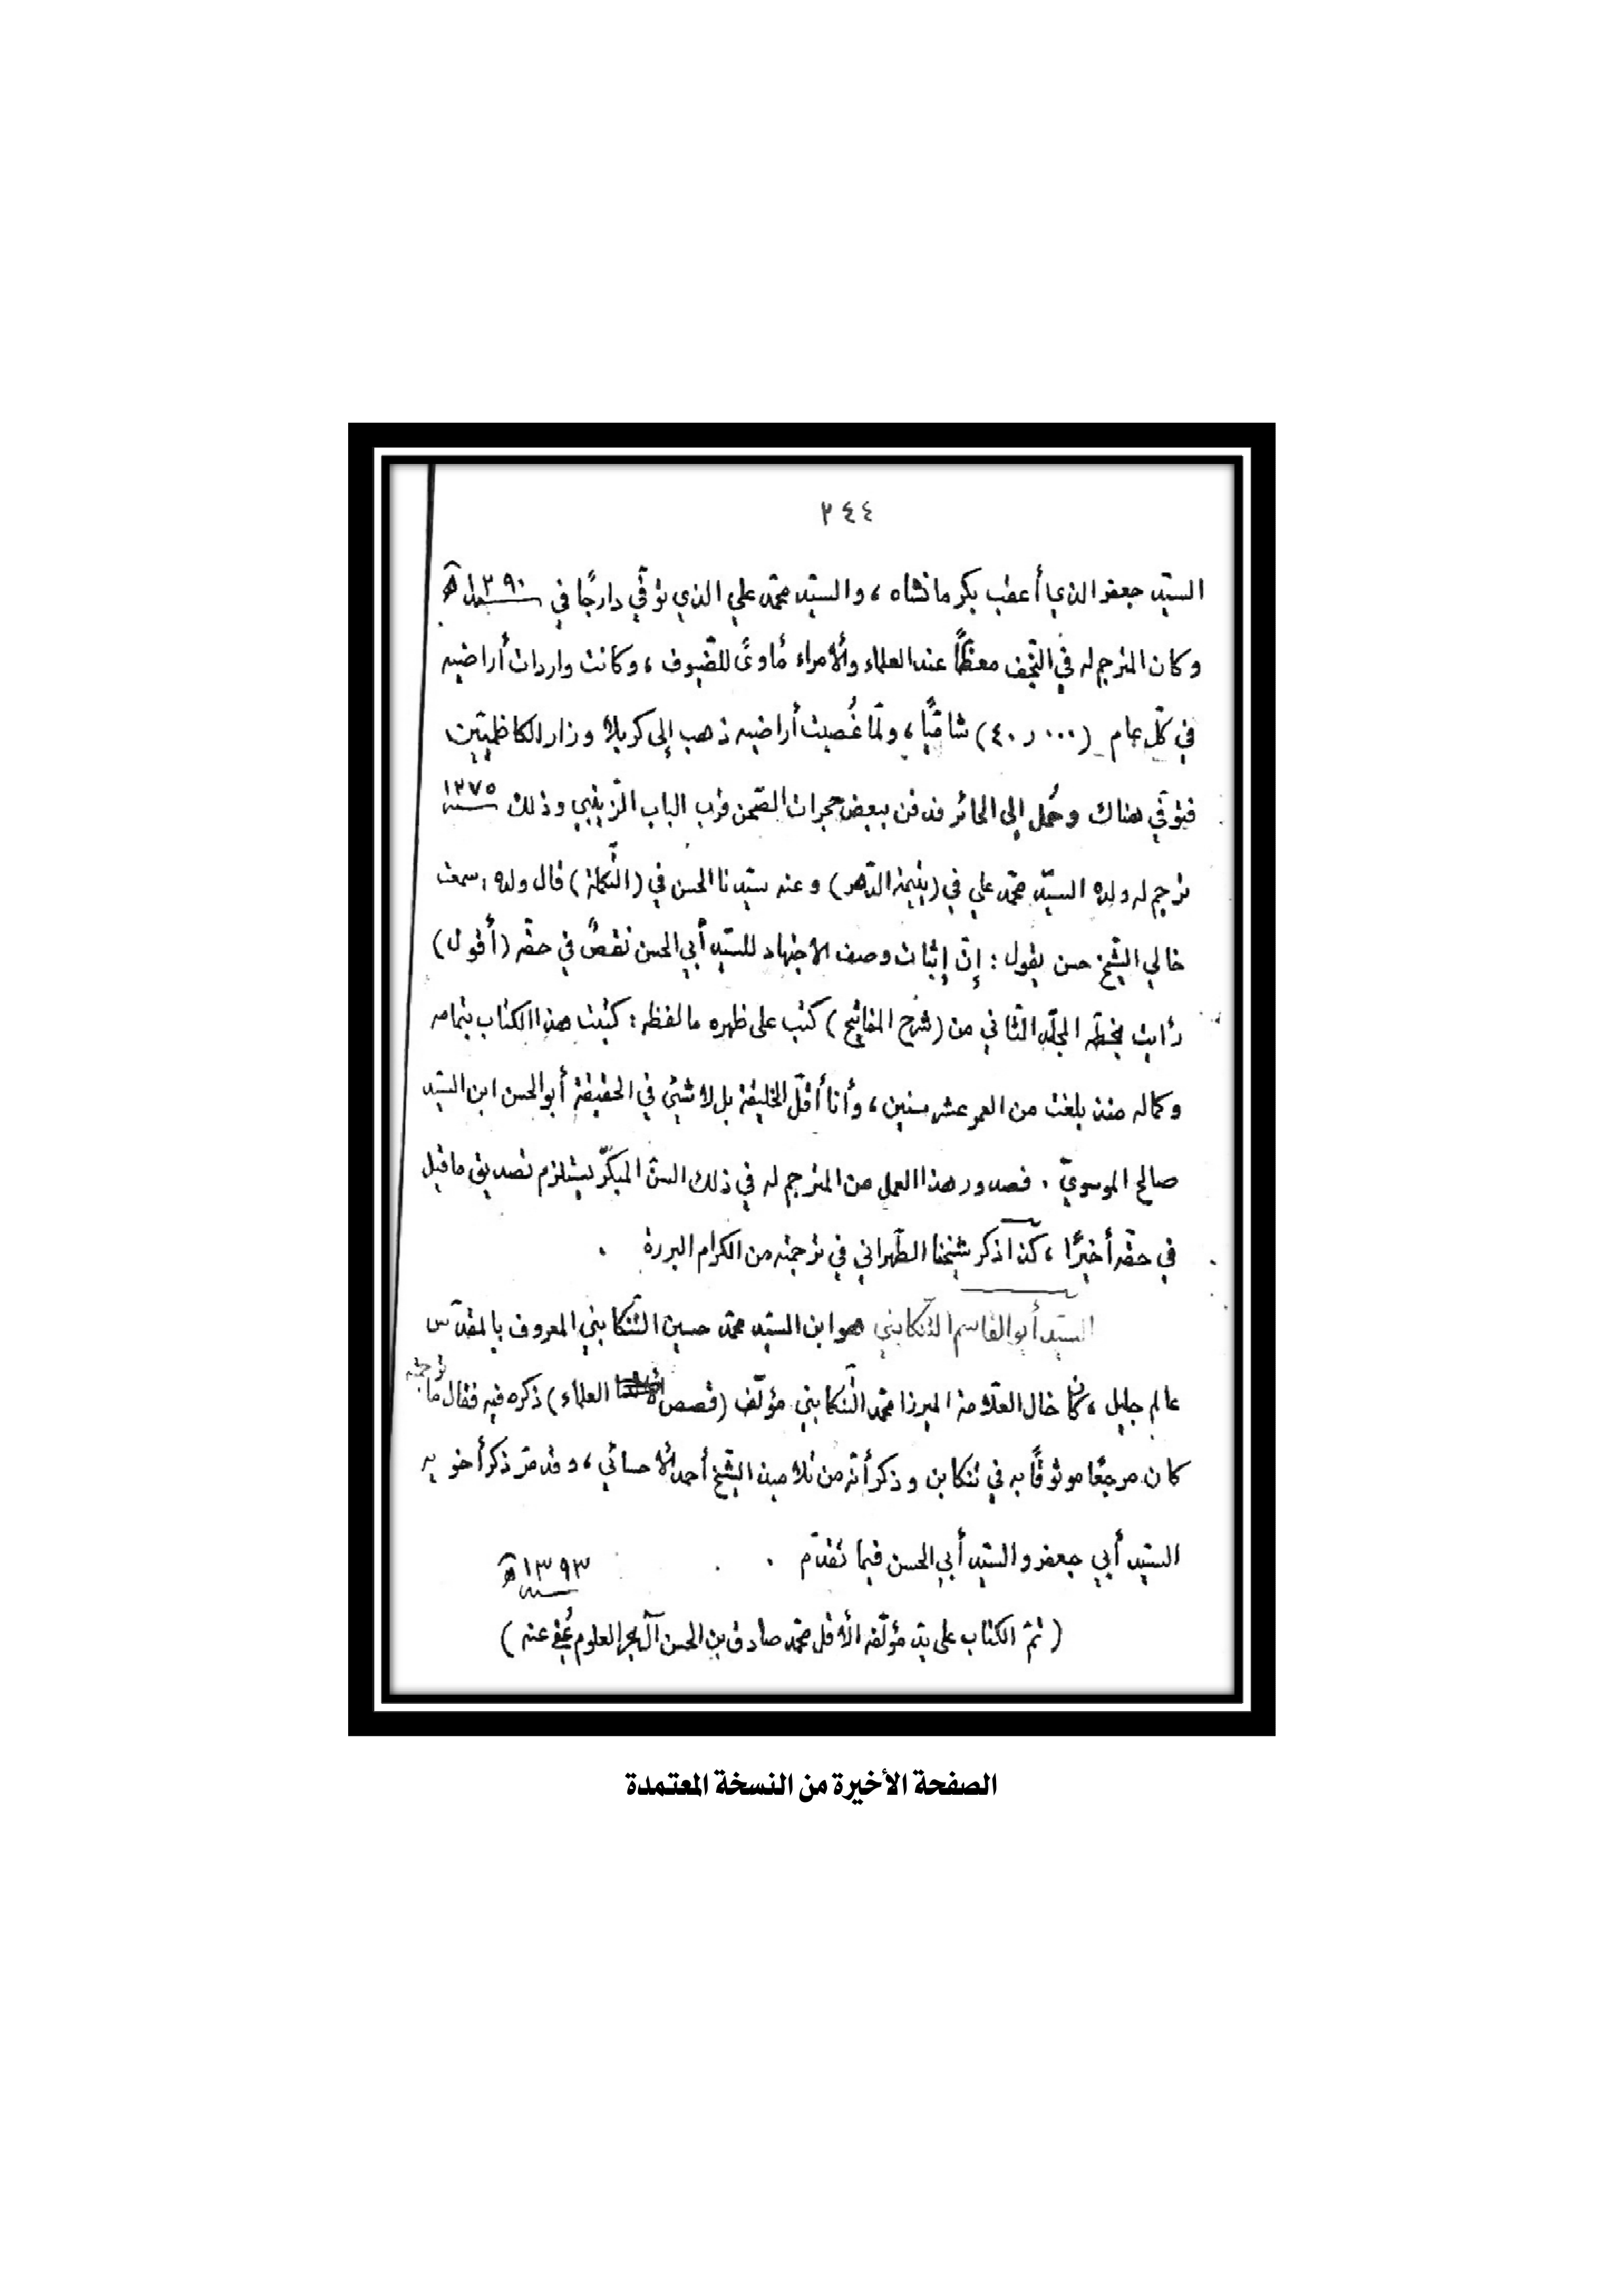 ٢٤٤
السيّد جعفر الذي أعقب بكرمانشاه، والسيّد محمّد علي الذي توفّي دارجًا في سنة ١٢٩٠ ه‍
وكان المترجم له في النّجف معظّمًا عند العلماء والأمراء مأوىً للضّيوف، وكانت واردات أراضيه
في كلّ عام (٤٠٫٠٠٠) شاميًّا، ولمّا غُصبت أراضيه ذهب إلى كربلا وزار الكاظميّين
فتوفّي هناك وحُمل إلى الحائر فدفن ببعض حجرات الصّحن قرب الباب الزّينبي وذلك سنة ١٢٧٥
ترجم له ولده السيّد محمّد علي في (يتيمة الدّهر) وعنه سيّدنا الحسن في (التّكملة) قال ولده: سمعت
خالي الشّيخ حسن يقول: إنّ إثبات وصف الاجتهاد للسيّد أبي الحسن نقصٌ في حقّه (أقول)
رأيت بخطّه المجلّد الثّاني من (شرح المفاتيح) كتب على ظهره ما لفظه: كتبت هذا الكتاب بتمامه
وكماله منذ بلغت من العمر عشر سنين، وأنا أقلّ الخليقة بل لا شيئ في الحقيقة أبو الحسن ابن السيّد
صالح الموسويّ. فصدور هذا العمل من المترجم له في ذلك السنّ المبكّر يستلزم تصديق ما قيل
في حقّه أخيرًا، كذا ذكر شيخنا الطّهراني في ترجمته من الكرام البررة.
السيّد أبو القاسم التّنكابني هو ابن السيّد محمّد حسين التّنكابني المعروف بالمقدّس
عالم جليل، كان خال العلّامة الميرزا محمّد التّنكابني مؤلّف (قصص العلماء) ذكره فيه فقال ما ترجمته
كان مرجعًا موثوقًا به في تنكابن وذكر أنّه من تلاميذ الشّيخ أحمد الأحسائي، وقد مرّ ذكر أخويه
السيّد أبي جعفر والسيّد أبي الحسن فيما تقدّم. سنة ١٣٩٣ ه‍
(تمّ الكتاب على يد مؤلّفه الأقل محمّد صادق بن الحسن آل بحر العلوم عُفي عنه)
الصفحة الأخيرة من النسخة المعتمدة